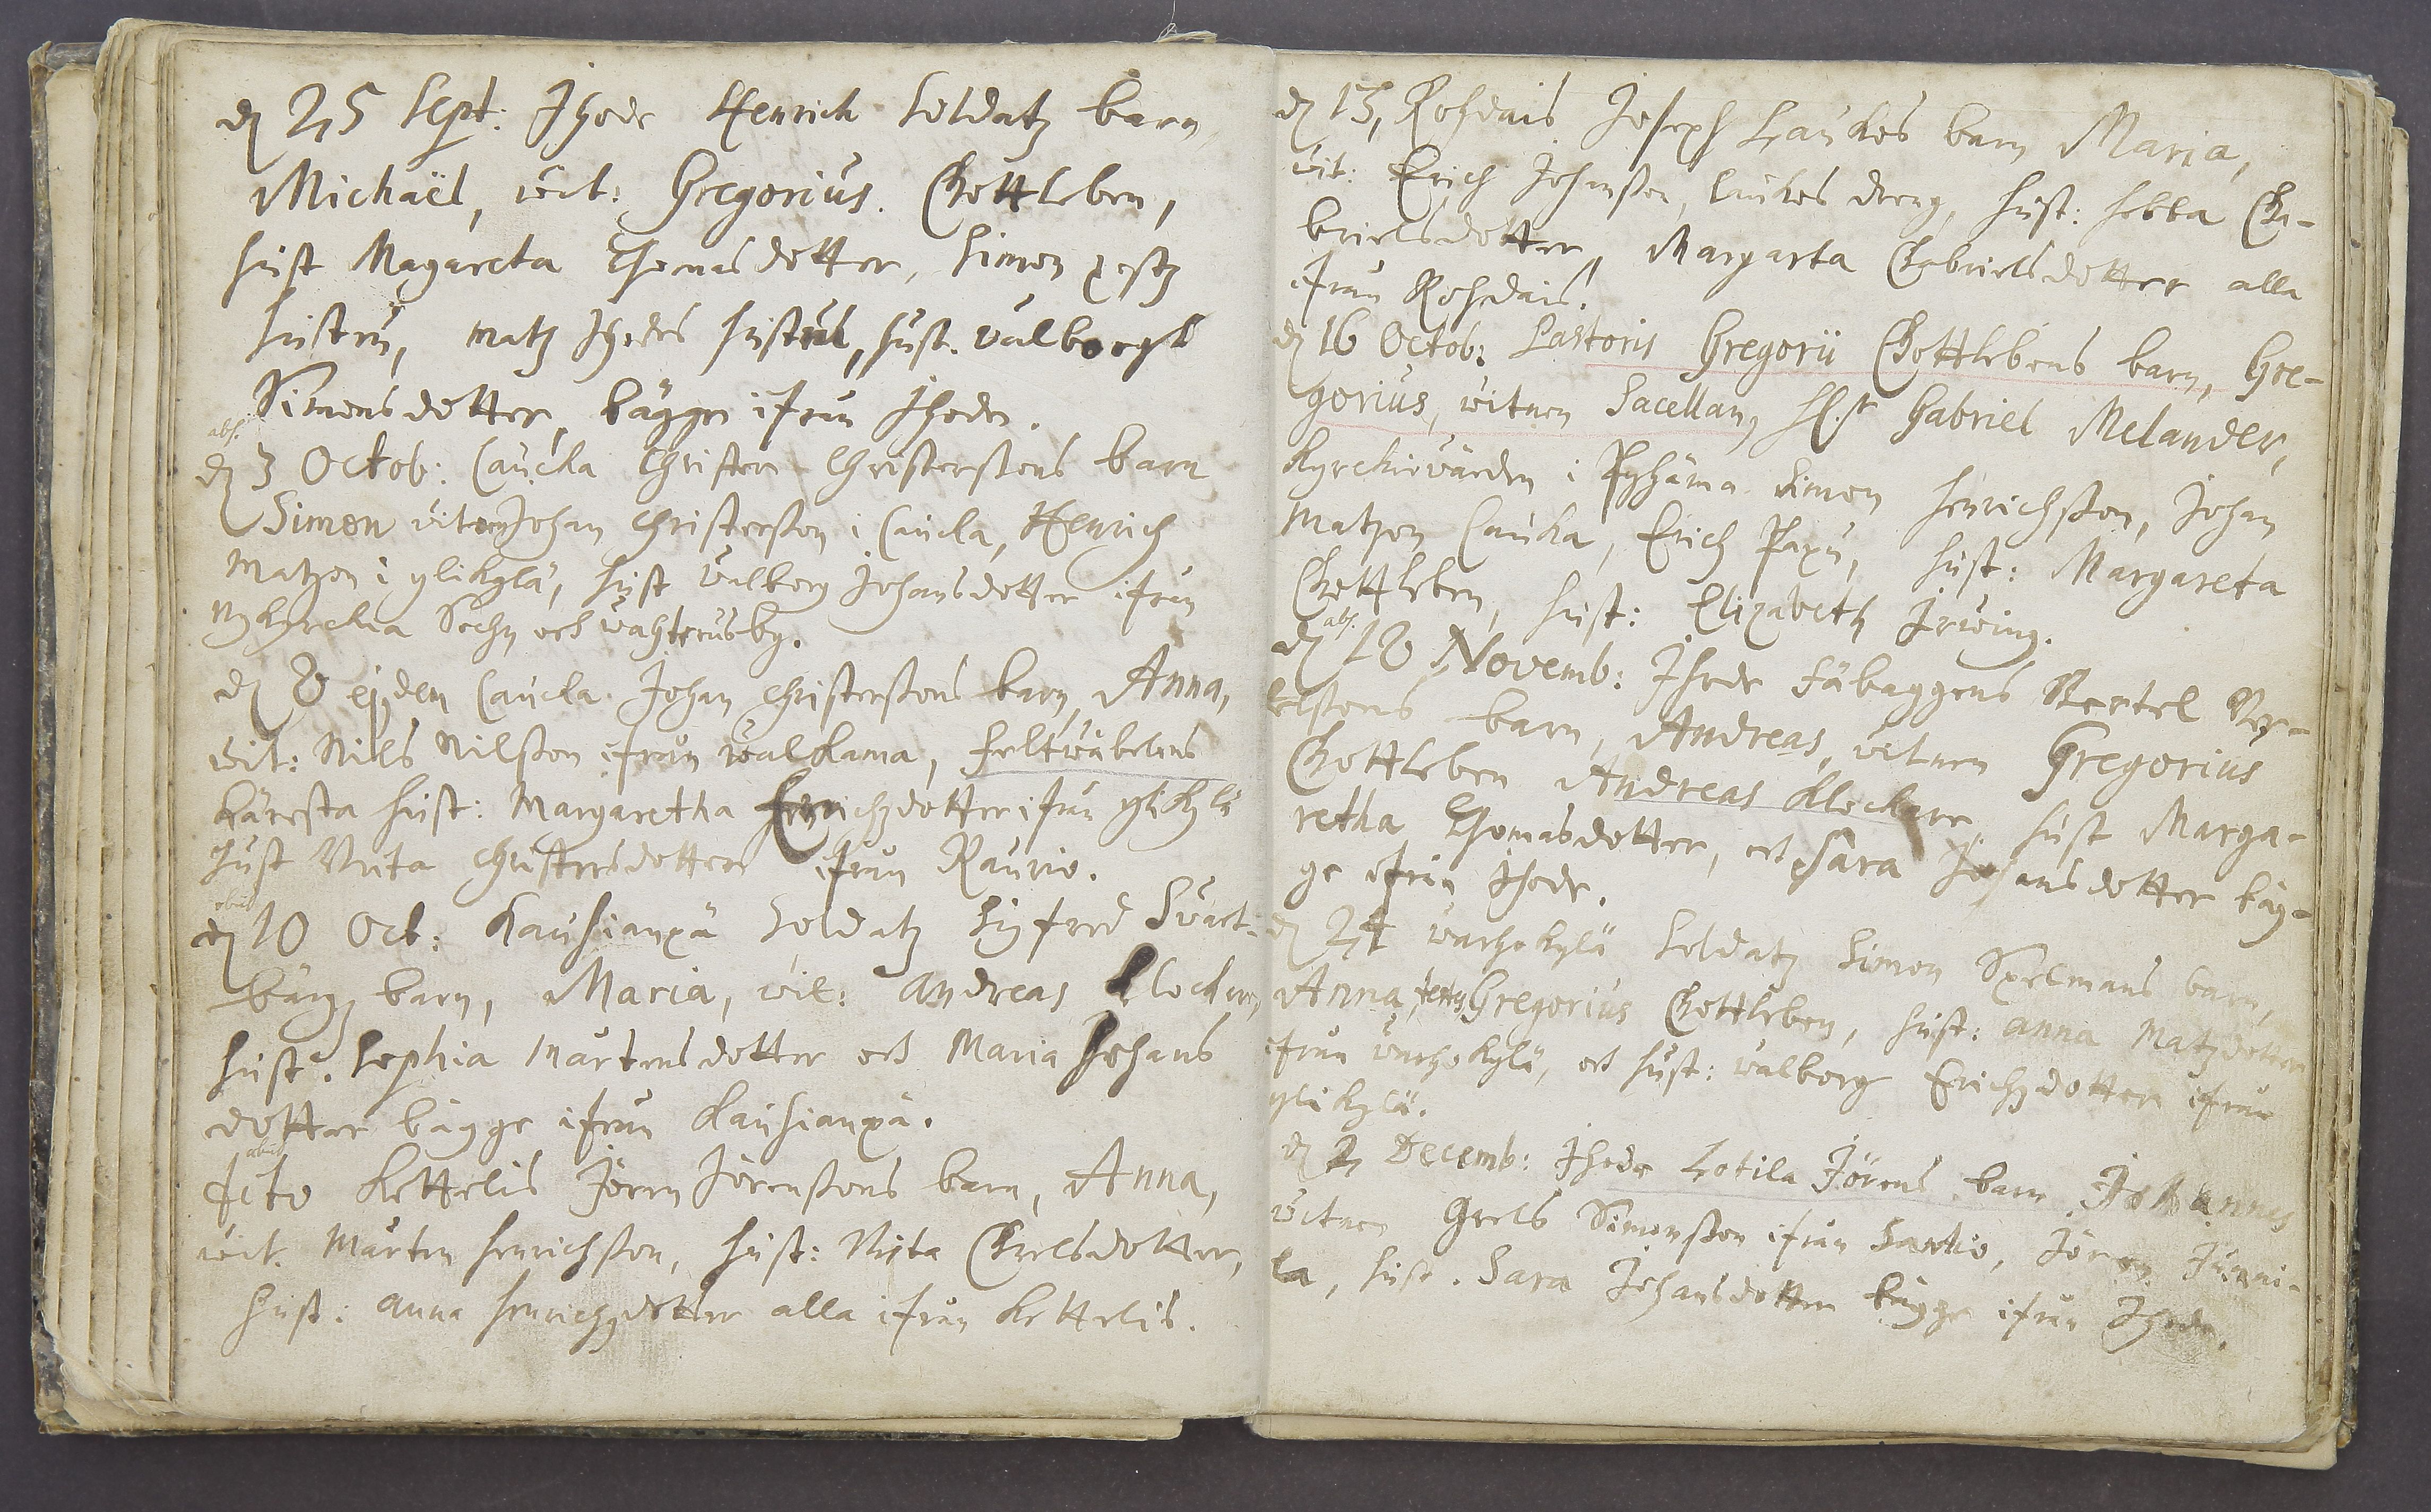 d 25 Sept: Ihode Henrich Soldatz barn
Michaël, wit: Gregorius. Gottleben,
hust Magareta Thomasdotter, Simon
hustru, Matz Ihodes hustru, hust. Valborgh
Simonsdotter, bägge ifrån Ihode.
abs.
d 3 Octob: Caucla Christer Christerßons barn
Simon vitnen Johan Christerßon i Caucla, Henrich
Matzon i ylikylä, hust Walborg Johansdotter ifrån
Nykyrckia Sochn och wahterusby.
d 8 ejusdem Caucla Johan Christerßons barn Anna,
wit: Nils Nilßon ifrån walkama, feltwäbelens
käresta hust: Margaretha Henrichzdotter ifrån ylikylä
hust Brita Christersdotter ifrån Raurio.
obiit
d 10 Oct: Kauhianpä Soldatz Sigfred Swart-
bärgz barn, Maria, wit: Andreas Klockare,
hust. Sophia Mårtensdotter och Maria Johans
dotter bägge ifrån Kauhianpä.
obiit
dito Kettelis Jören Jörenßons barn, Anna,
wit. Mårten Henrichßon, hust: Brita Grelsdotter,
hust: Anna Henrichzdotter alla ifrån Kettelis.
d 13, Rohdais Joseph Laukos barn Maria,
wit: Erich Johanßon, laukos dreng, hust: hebba Ga-
brielsdotter, Margarta Gabrielsdotter alla
ifrån Rohdais.
d 16 Octob: Pastoris Gregorii Gottlebens barn, Gre-
gorius, witnen Sacellan, H:r Gabriel Melander,
Kyrckiowärden i Pyhäma Simon Henrichßon, Johan
Matzon Caucka, Erich Papu, hust: Margareta
Gottleben, hust: Elizabeth Irwing.
abs.
d 18 Novemb: Ihode Fäbaggens Bertel Ber-
telßons barn, Andreas, witnen Gregorius
Gottleben Andreas Klockare, hust Marga-
retha Thomasdotter, och Sara Johansdotter bäg-
ge ifrån Ihode.
d 24 warhokylä Soldatz Simon Spelmans barn,
Anna, testes Gregorius Gottleben, hust: Anna Matzdotter
ifrån warhokylä, och hust: walborg Erichzdotter ifrån
ylikylä.
d 2 Decemb: Ihode Lotila Jörens barn Johannes
witnen Grels Simonßon ifrån Sarkio, Jören Junni-
la, hust. Sara Johansdotter bägge ifrån Ihode.